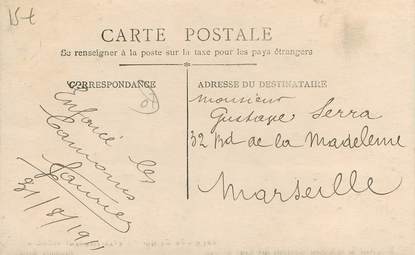 15€
CARTE POSTALE
Se renseigner à la poste sur la taxe pour les pays étrangers
CORRESPONDANCE
Enfoncé les
Camions
ADRESSE DU DESTINATAIRE
Monsieur
Gustave Serra
32 Bd de la Madeleine
Marseille